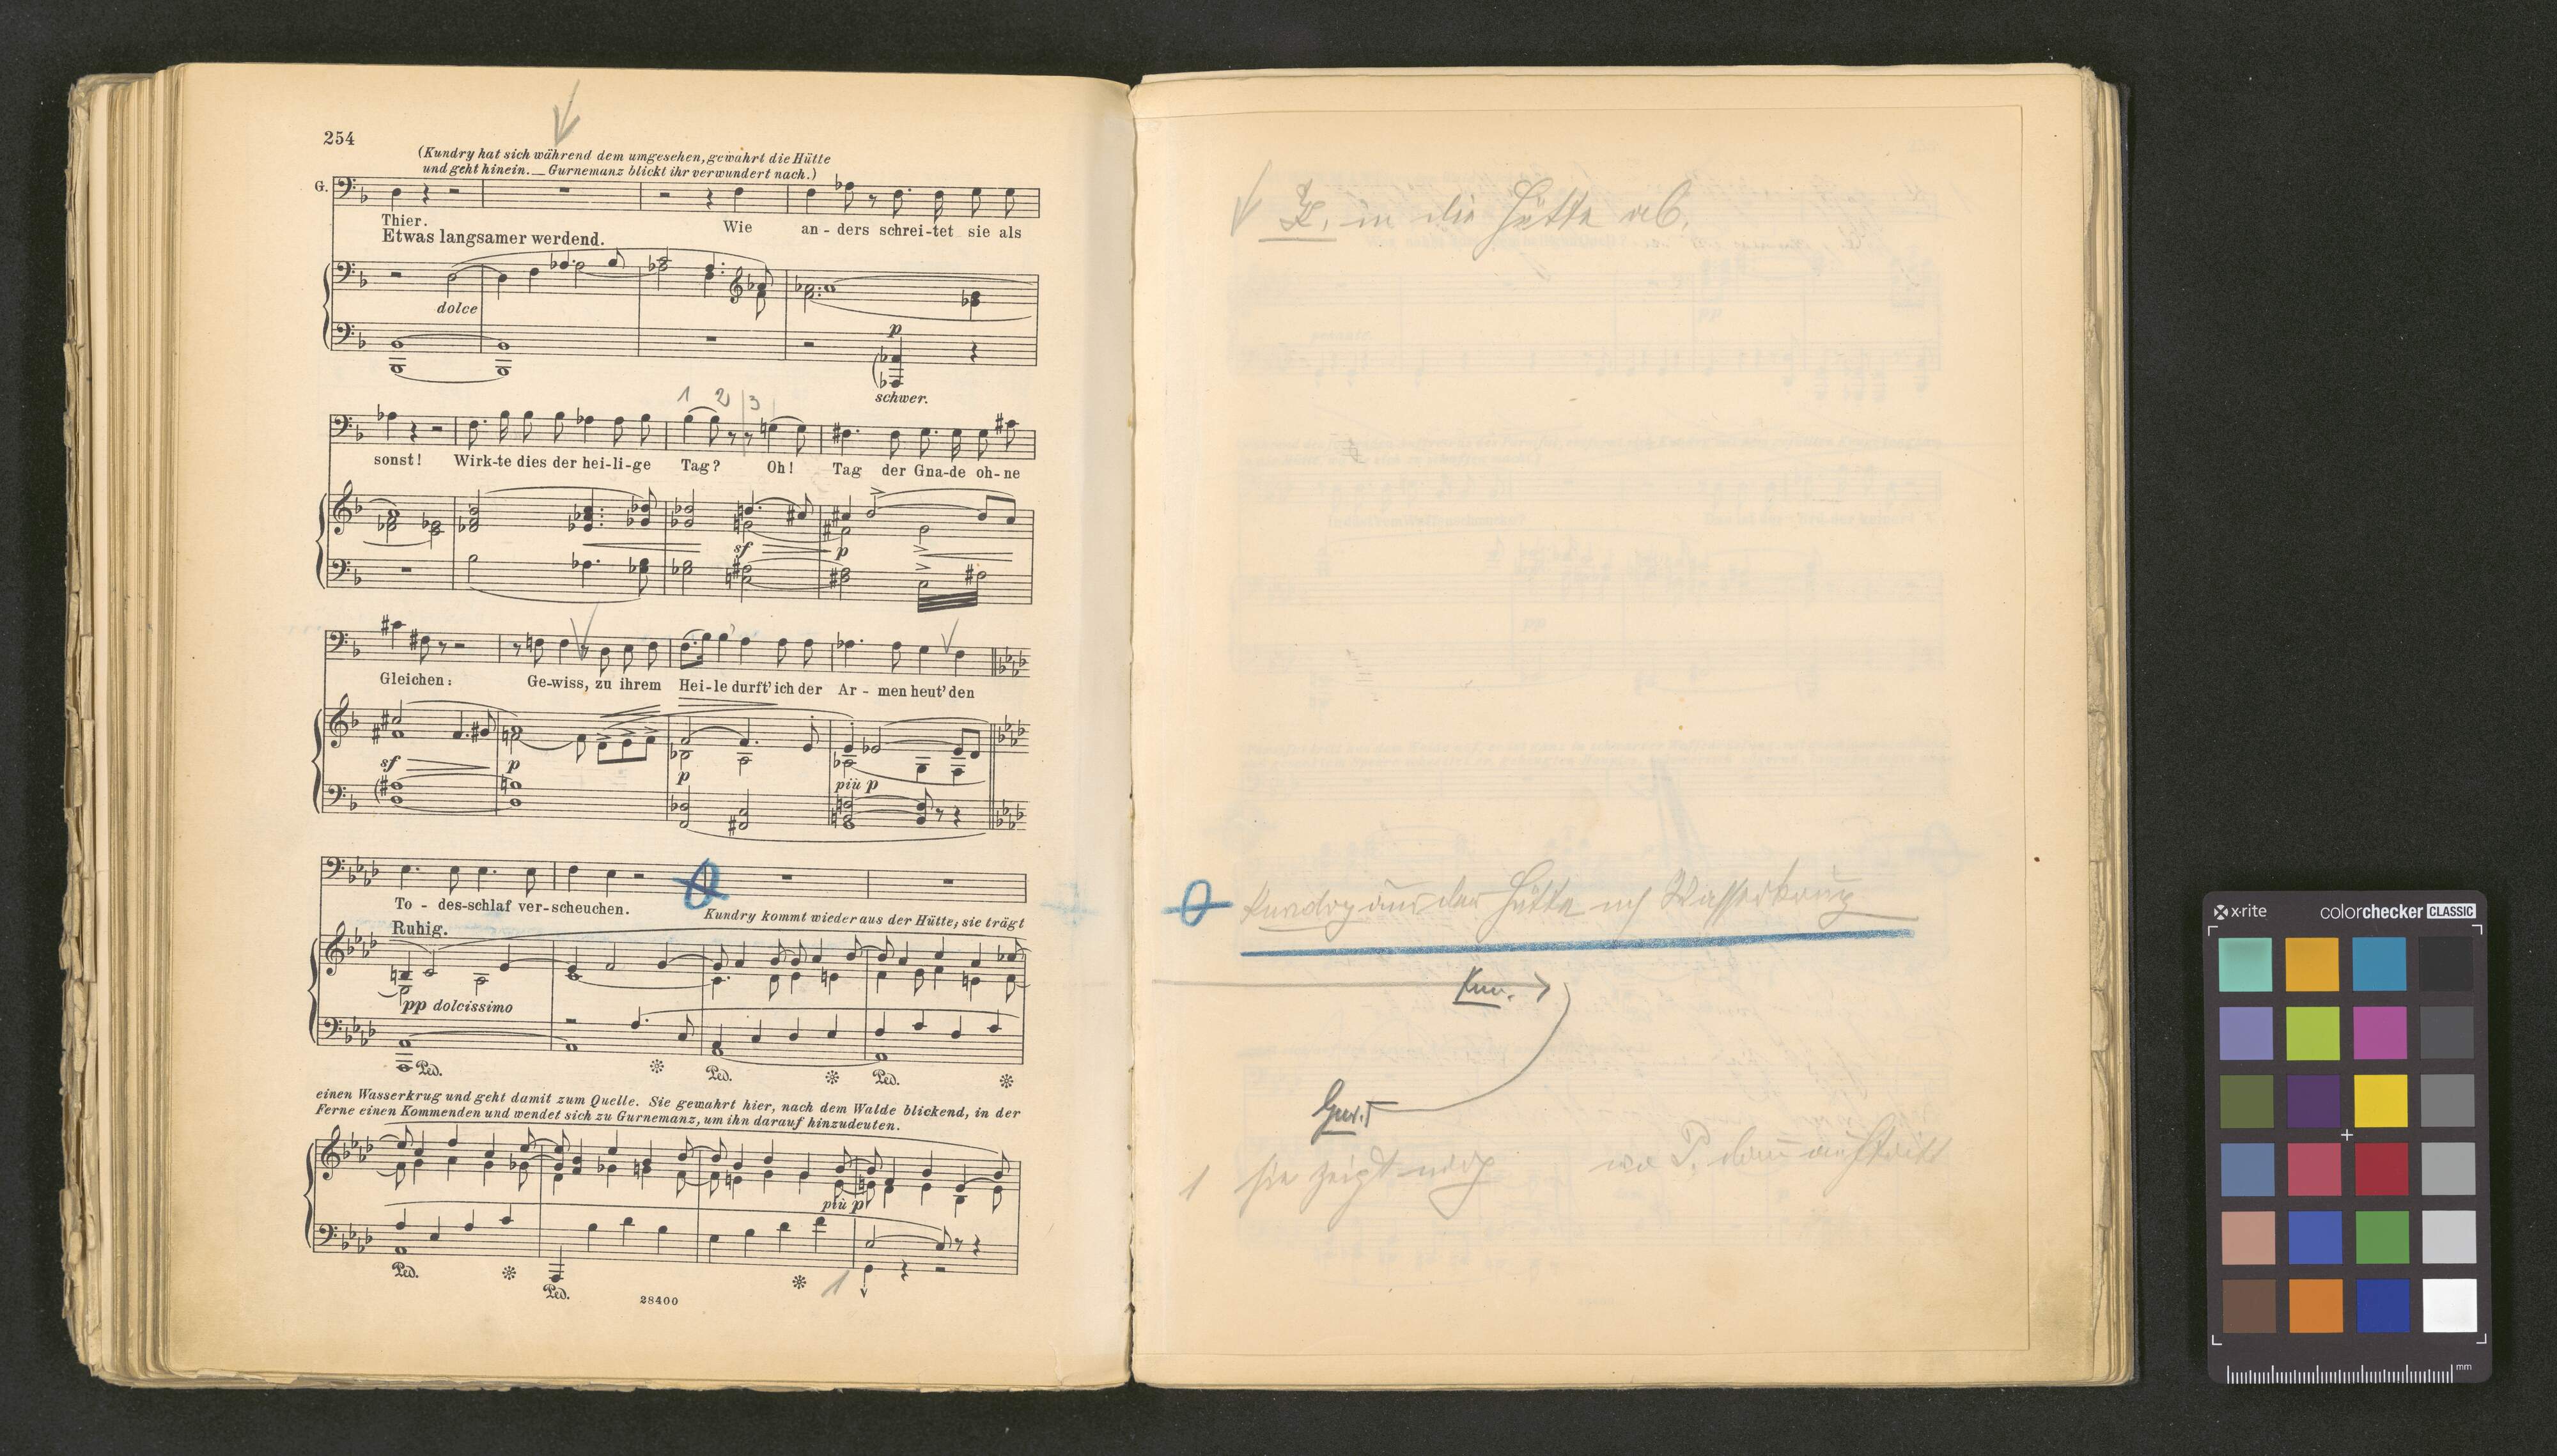 254
(Kundry hat sich während dem umgesehen, gewahrt die Hütte
und geht hinein. _ Gurnemanz blickt ihr verwundert nach.)
G.
Thier. Wie an - ders schrei - tet sie als
Etwas langsamer werdend.
dolce
p
schwer.
1 2 3
sonst! Wirk-te dies der hei-li-ge Tag? Oh! Tag der Gna-de oh-ne
sf p
Gleichen: Ge-wiss, zu ihrem Hei-le durft' ich der Ar - men heut' den
sf p p più p
To - des-schlaf ver-scheuchen.
Kundry kommt wieder aus der Hütte; sie trägt
Ruhig.
pp dolcissimo
Ped. * Ped. * Ped. *
einen Wasserkrug und geht damit zum Quelle. Sie gewahrt hier, nach dem Walde blickend, in der
Ferne einen Kommenden und wendet sich zu Gurnemanz, um ihn darauf hinzudeuten.
più p
Ped. * Ped. * 1
28400
in die Hütte ab.
Kundry aus der Hütte Wasserkrug
Kun.
Gur.
1 sie zeigt wo P. dann auftritt
x-rite colorchecker CLASSIC
mm